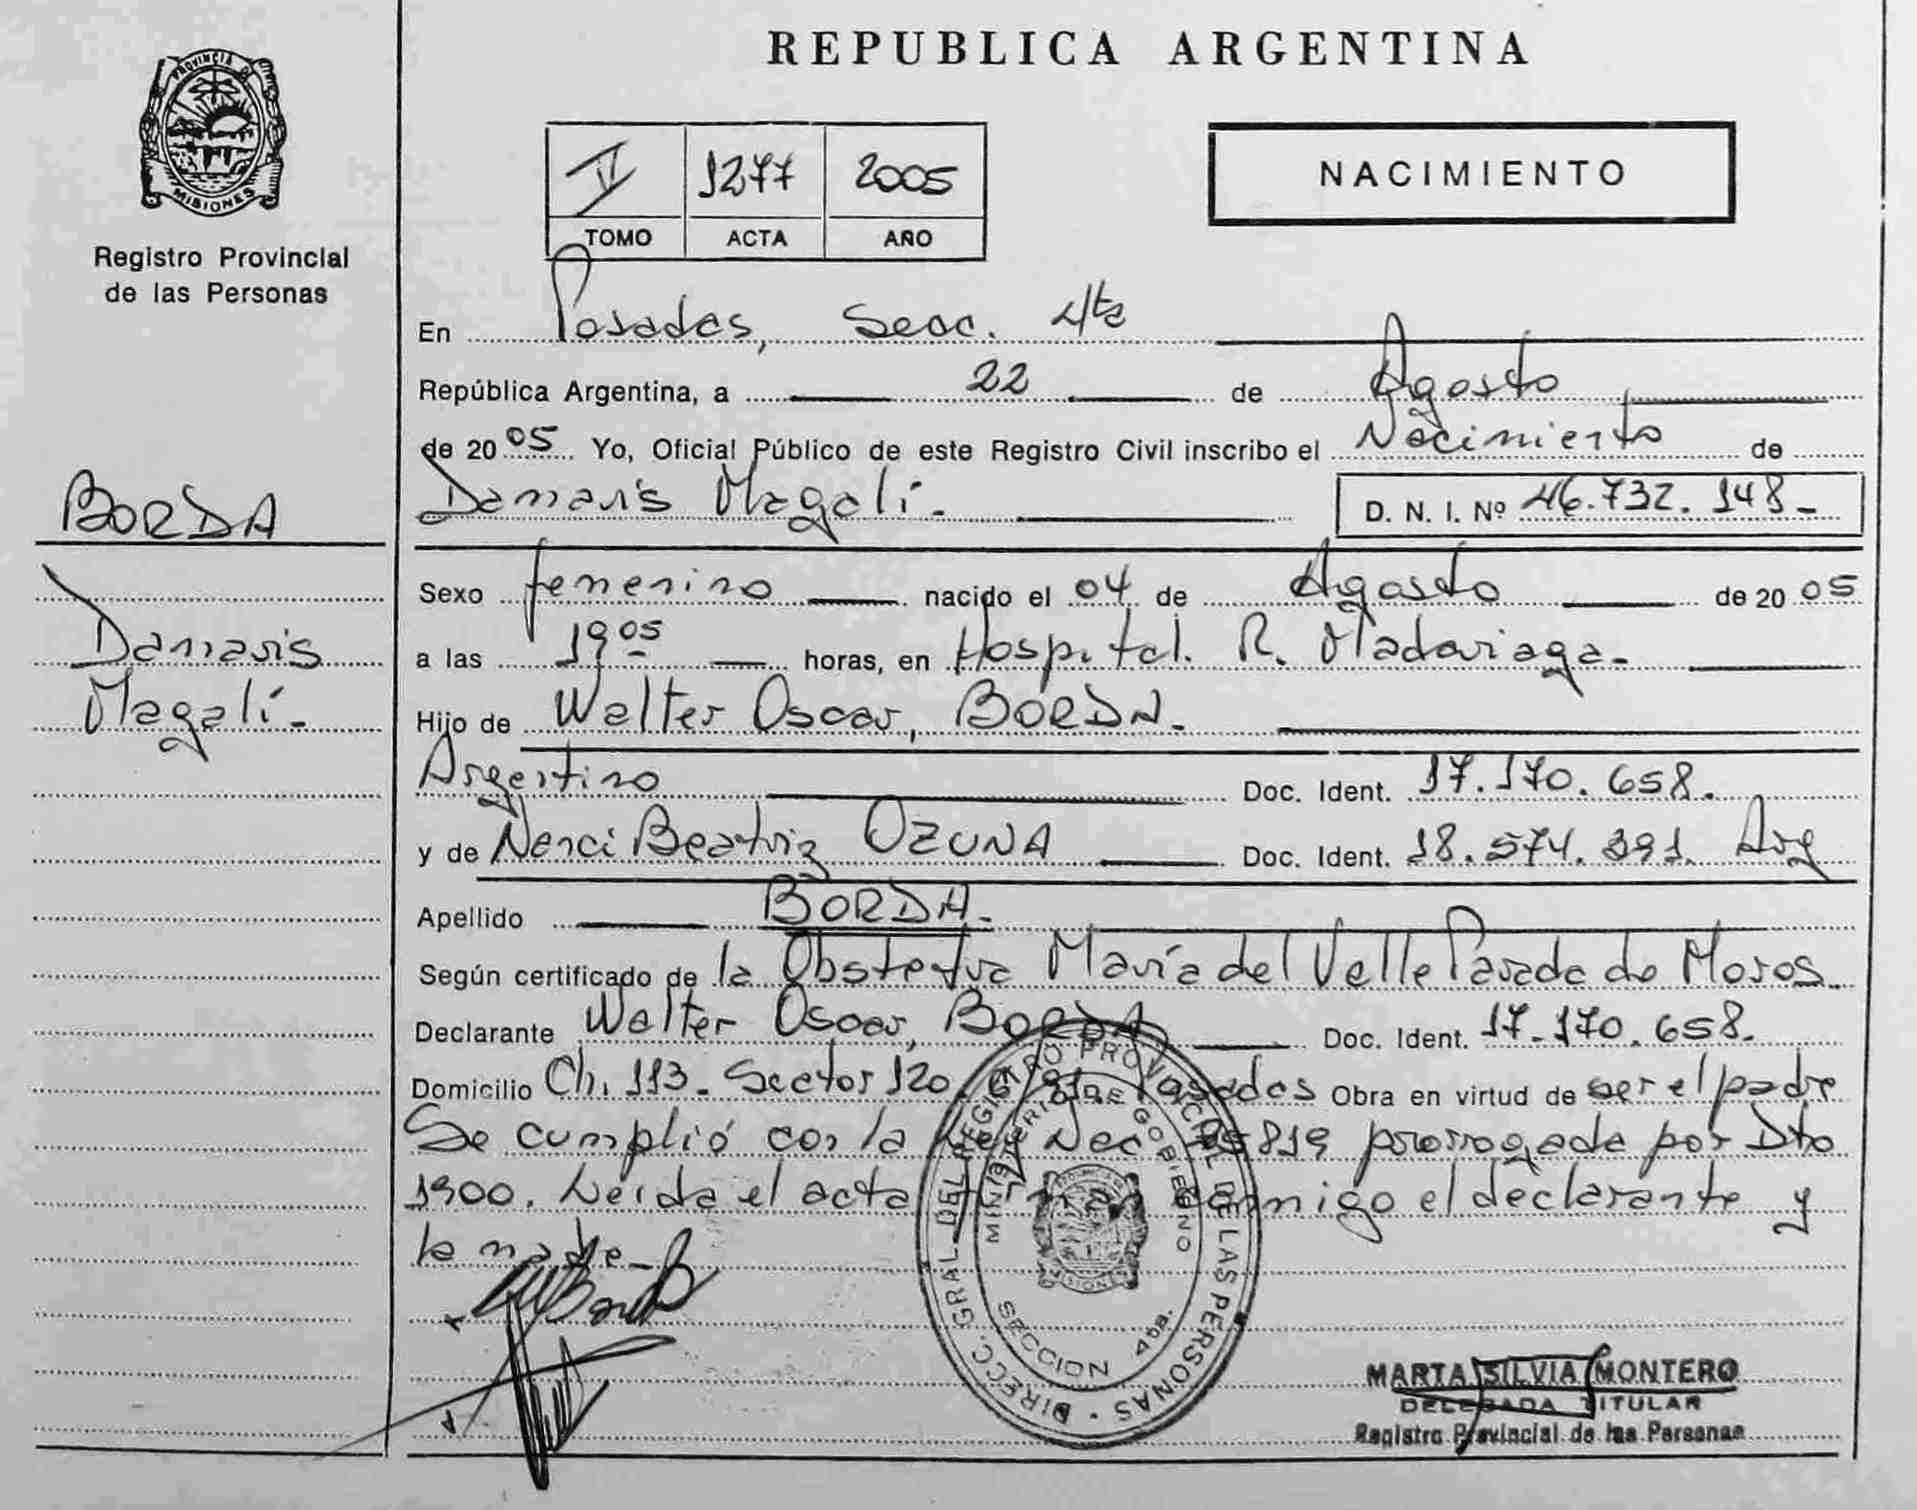 REPUBLICA ARGENTINA
PROVINCIA DE
MISIONES
Registro Provincial
de las Personas
II 1277 2005
TOMO ACTA AÑO
NACIMIENTO
En Posadas, Secc. 4ta
República Argentina, a 22 de Agosto
de 2005 Yo, Oficial Público de este Registro Civil inscribo el Nacimiento de
Damaris Magalí.- D. N. I. Nº 46.732.148.-
BORDA
Damaris
Magalí.-
Sexo femenino nacido el 04 de Agosto de 2005
a las 19 05 horas, en Hospital. R. Madariaga.-
Hijo de Walter Oscar, BORDA.-
Argentino Doc. Ident. 17.170.658.
y de Nerci Beatriz OZUNA Doc. Ident. 18.574.391. Arg
Apellido BORDA.-
Según certificado de la Obstetra María del Valle Parada de Moros.
Declarante Walter Oscar, BORDA Doc. Ident. 17.170.658.
Domicilio Ch. 113. Sector 120. Posadas Obra en virtud de ser el padre
Se cumplió con la Ley Nac 25819 prorrogada por Dto
1900. Leida el acta firman conmigo el declarante y
la madre.-
DIRECC. GRAL. DEL REGISTRO PROVINCIAL DE LAS PERSONAS
MINISTERIO DE GOBIERNO
MISIONES
SECCION 4ta.
MARTA SILVIA MONTERO
DELEGADA TITULAR
Registro Provincial de las Personas